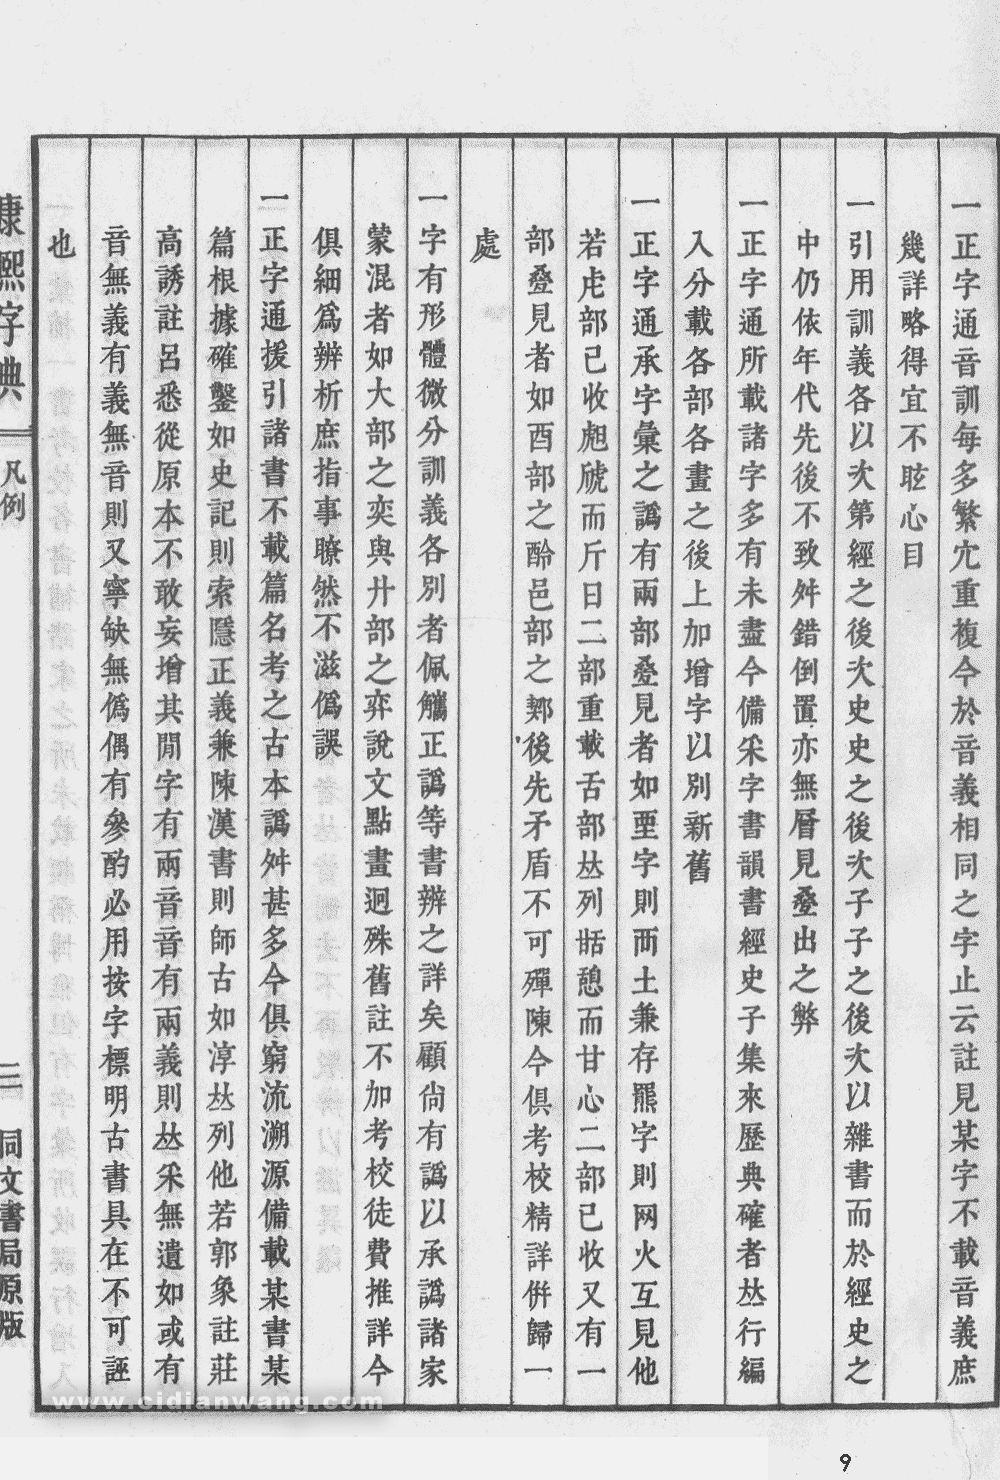 一正字通音訓每多繁宂重複今於音義相同之字止云註見某字不載音義庶
幾詳略得宜不眩心目
一引用訓義各以次第經之後次史史之後次子子之後次以雜書而於經史之
中仍依年代先後不致舛錯倒置亦無層見疊出之弊
一正字通所載諸字多有未盡今備采字書韻書經史子集來歷典確者竝行編
入分載各部各畫之後上加增字以別新舊
一正字通承字彙之譌有兩部疊見者如垔字則襾土兼存羆字則网火互見他
若虍部已收虒虓而斤日二部重載舌部竝列甛憩而甘心二部已收又有一
部疊見者如酉部之酴邑部之鄸後先矛盾不可殫陳今俱考校精詳倂歸一
處
一字有形體微分訓義各別者佩觿正譌等書辨之詳矣顧尙有譌以承譌諸家
蒙混者如大部之奕與廾部之弈說文點畫迥殊舊註不加考校徒費推詳今
俱細爲辨析庶指事瞭然不滋僞誤
一正字通援引諸書不載篇名考之古本譌舛甚多今俱窮流溯源備載某書某
篇根據確鑿如史記則索隱正義兼陳漢書則師古如淳竝列他若郭象註莊
高誘註呂悉從原本不敢妄增其閒字有兩音音有兩義則竝采無遺如或有
音無義有義無音則又寧缺無僞偶有參酌必用按字標明古書具在不可誣
也
康熙字典
凡例
三
同文書局原版
www.cidianwang.com
9